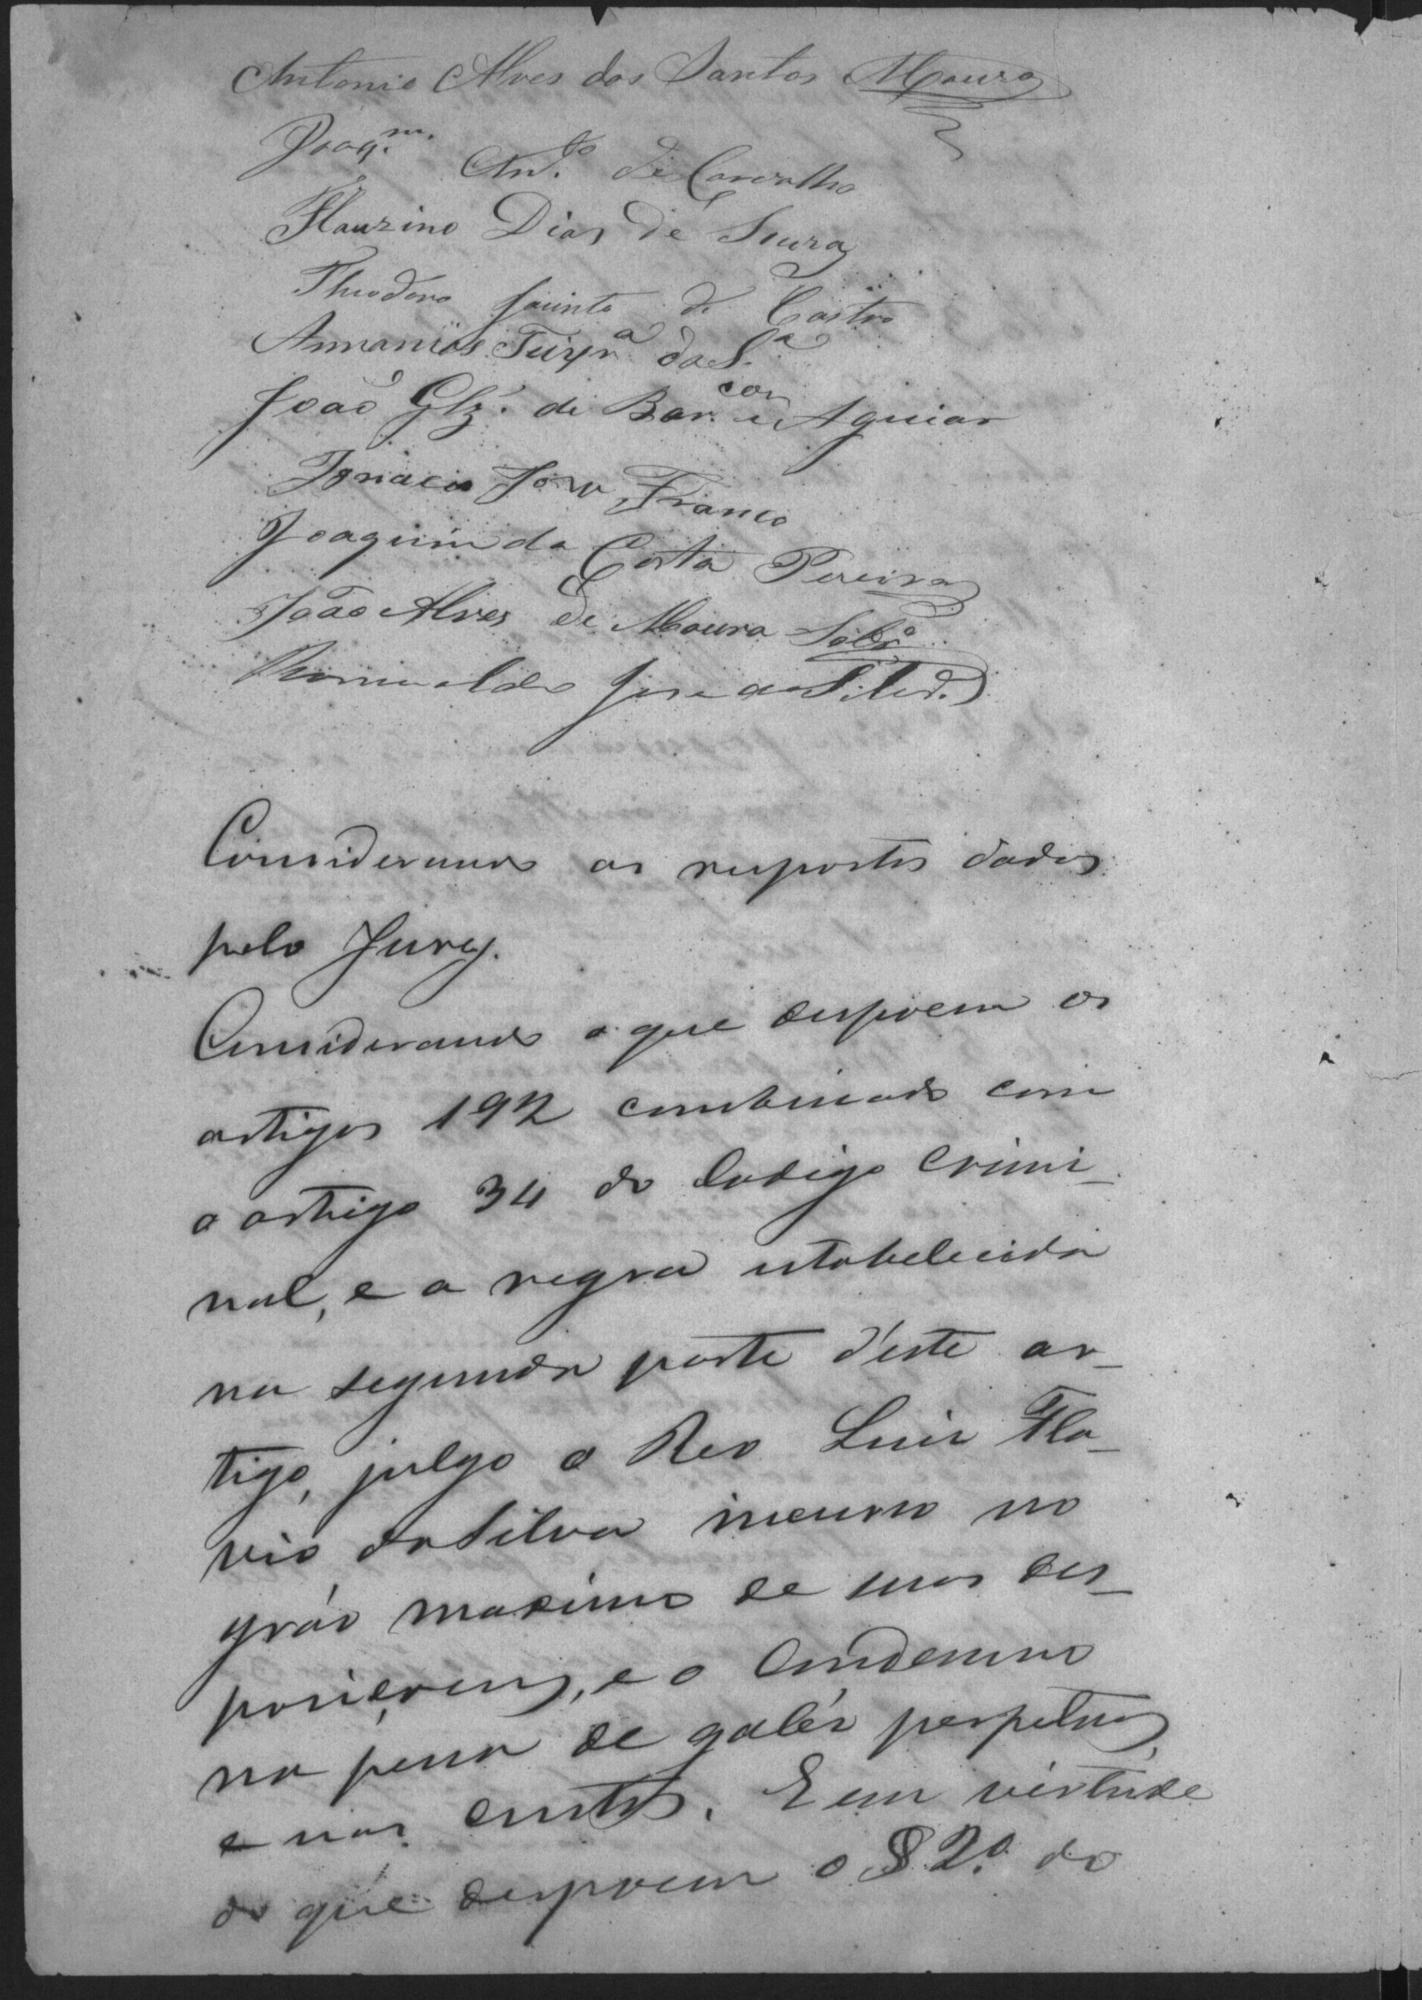 Antonio Alves dos Santos Moura
Joaq.m Ant.o de Carvalho
Flauzino Dias de Souza
Theodoro Jacinto de Castro
Ananias Teixr.a da S.a
João Glz. de Bar.con Aguiar
Ignacio José Franco
Joaquim da Costa Pereira
João Alves de Moura Sobr.o
Romualdo José da Silv.a
Considerando as respostas dadas
pelo Jury.
Considerando o que dispoem os
artigos 192 combinado com
o artigo 34 do Codigo Crimi-
nal, e a regra estabelecida
na segunda parte d'este ar-
tigo, julgo o Reo Luiz Fla-
vio da Silva incurso no
gráo maximo de suas dis-
posiçoens, e o condemno
na pena de galés perpetuas,
e nas custas. E em virtude
do que dispoem o § 2.o do